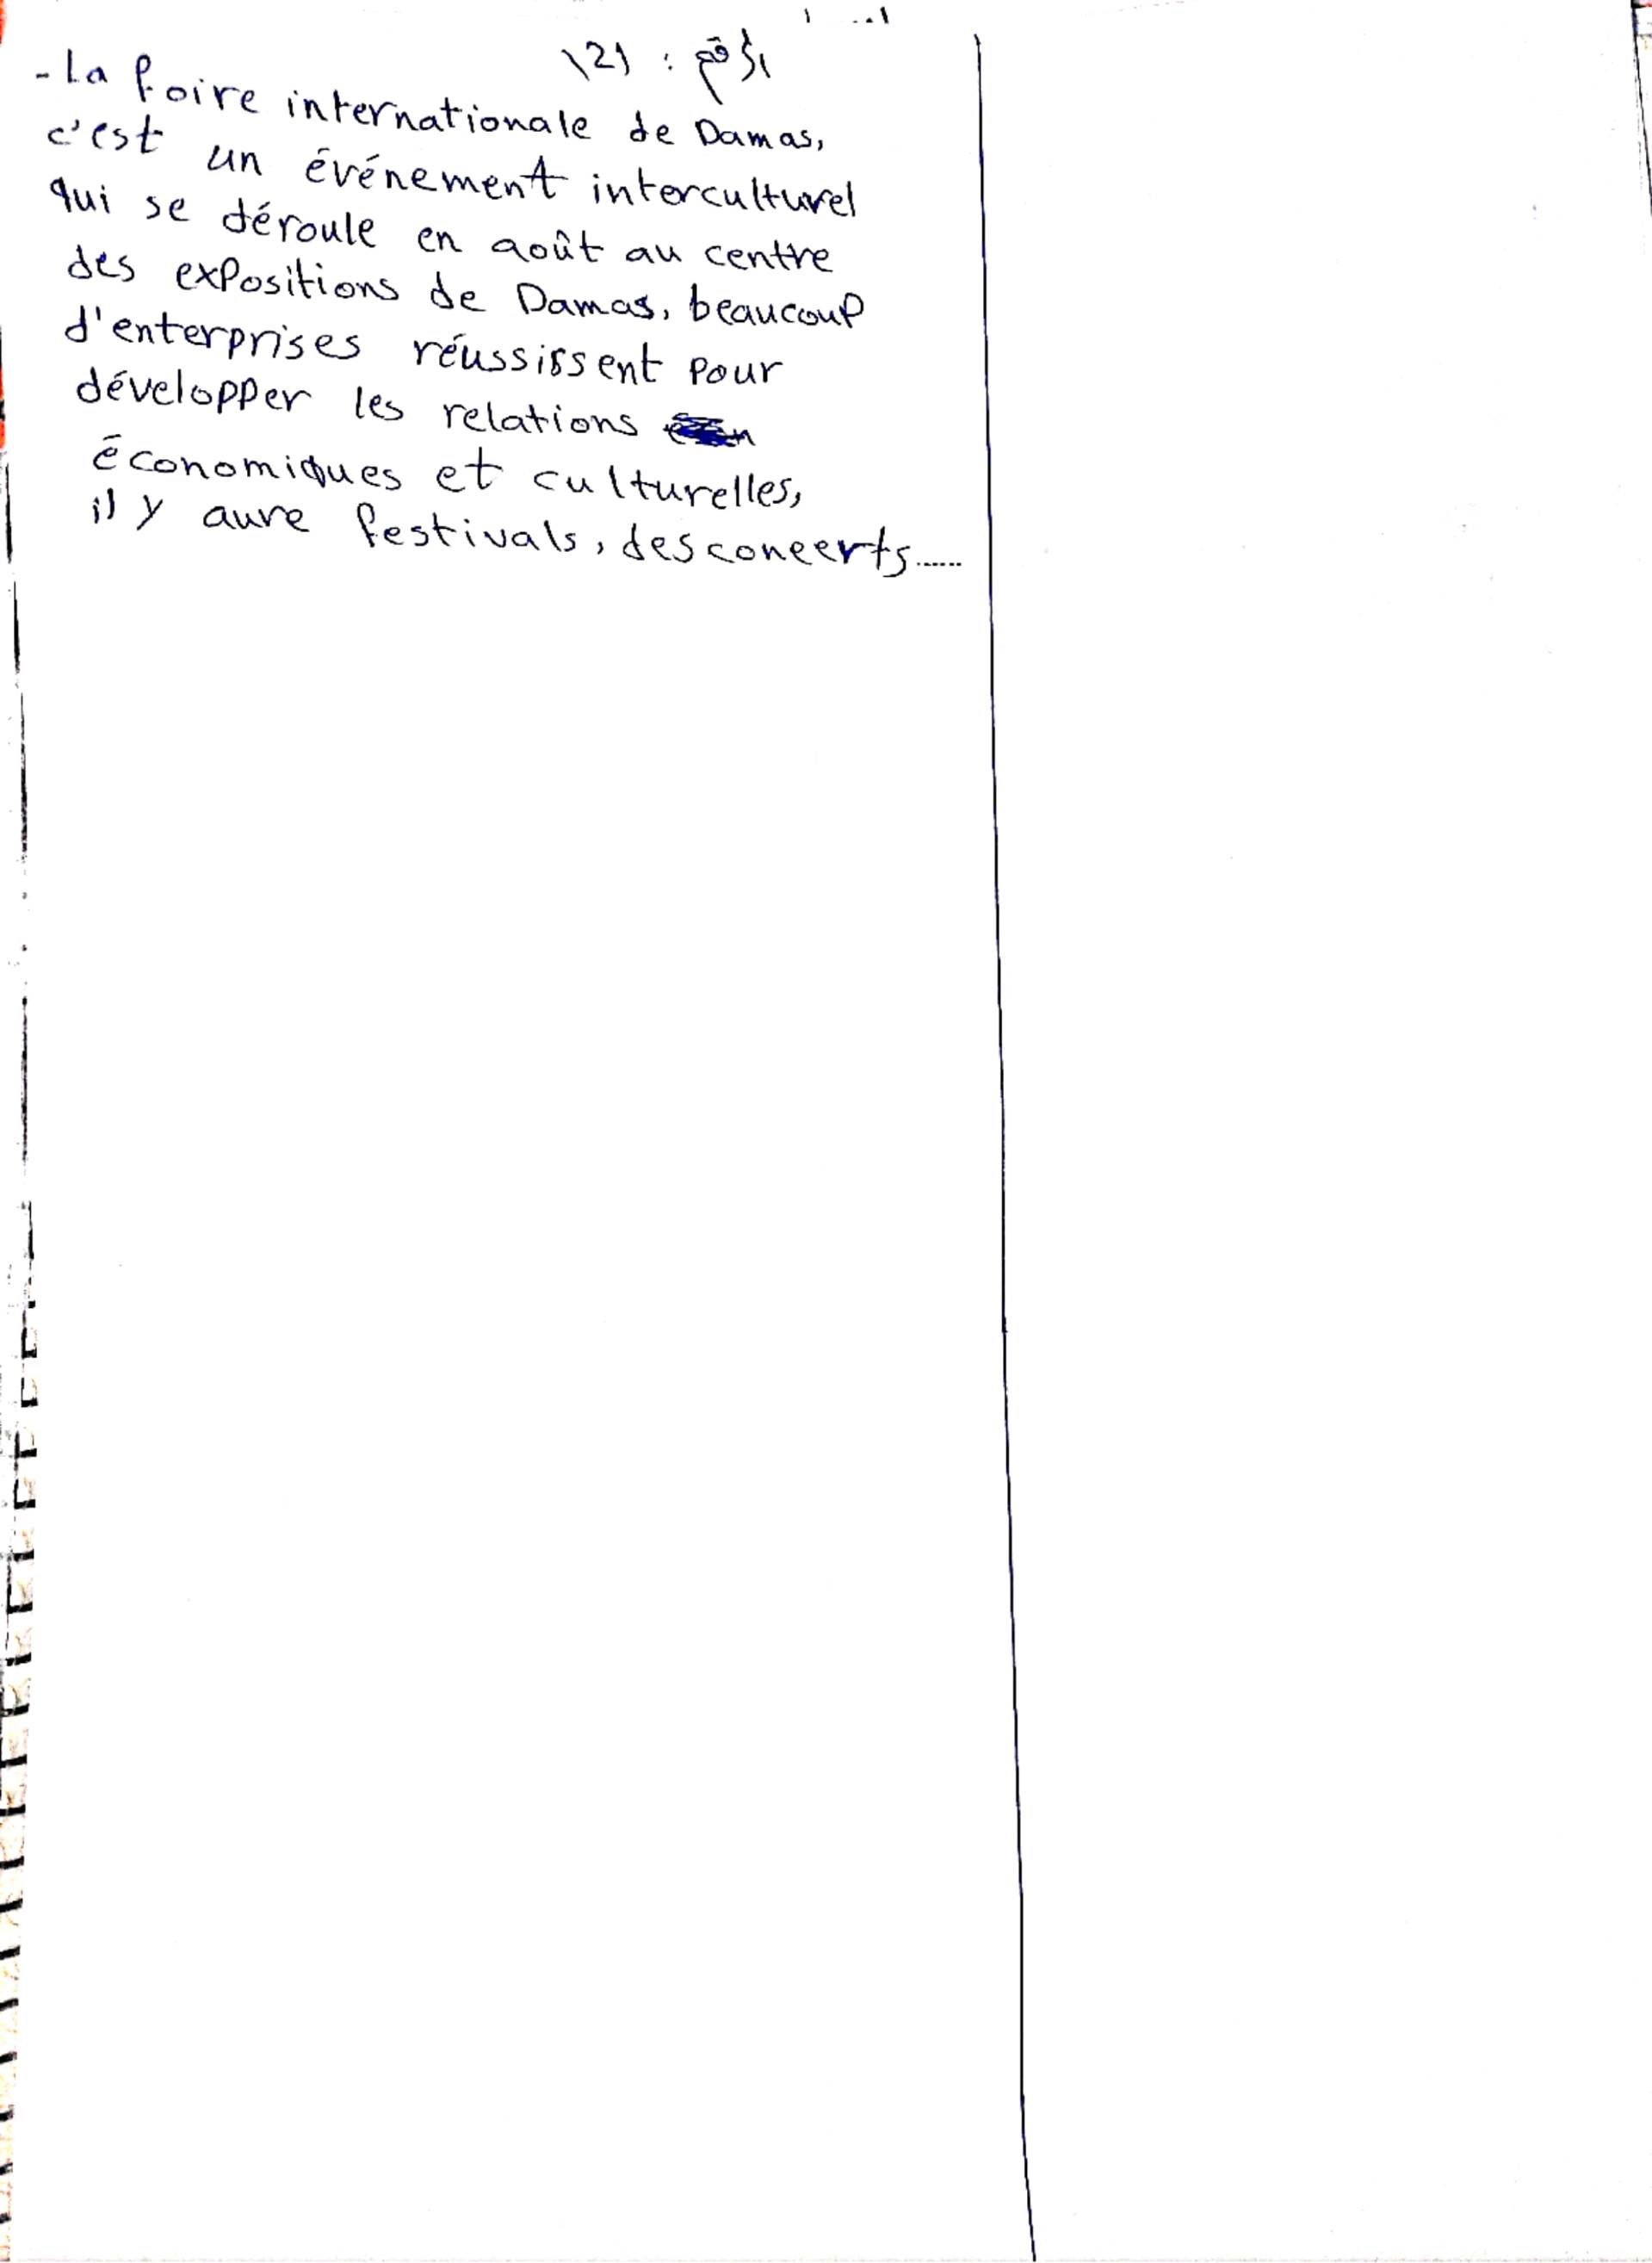 الرقم : 121
- La foire internationale de Damas,
c'est un événement interculturel
qui se déroule en août au centre
des expositions de Damas, beaucoup
d'enterprises réussissent pour
développer les relations
économiques et culturelles,
il y aure festivals, des conceerts......